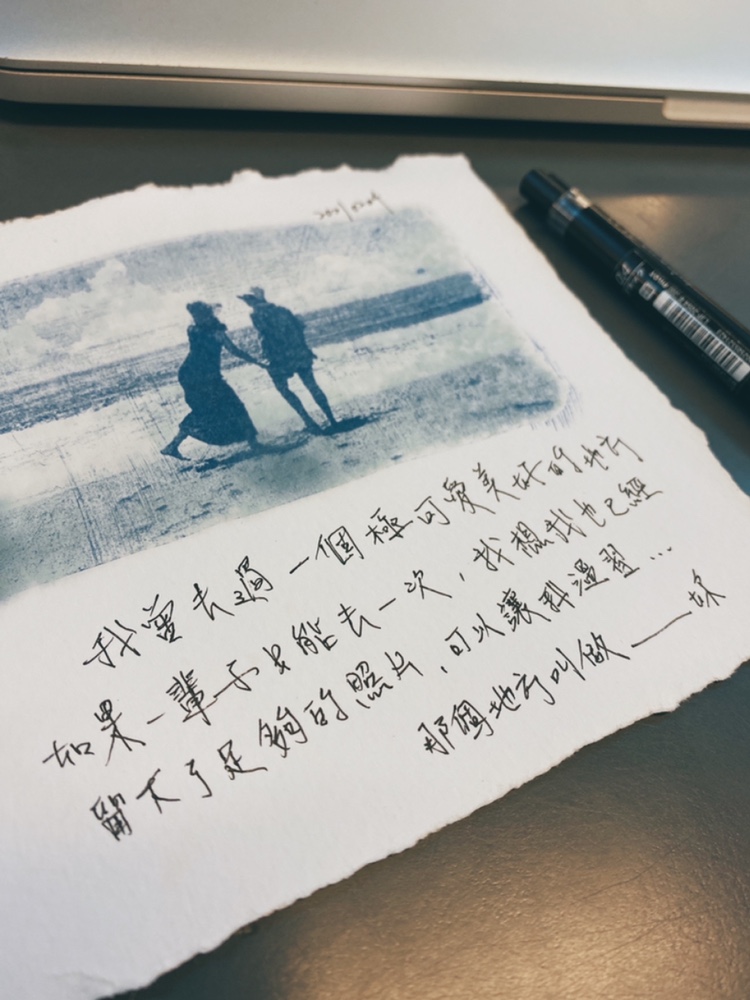 我曾去過一個極可愛美好的地方
如果一輩子只能去一次，我想我也已經
留下了足夠的照片，可以讓我溫習...
那個地方叫做——妳